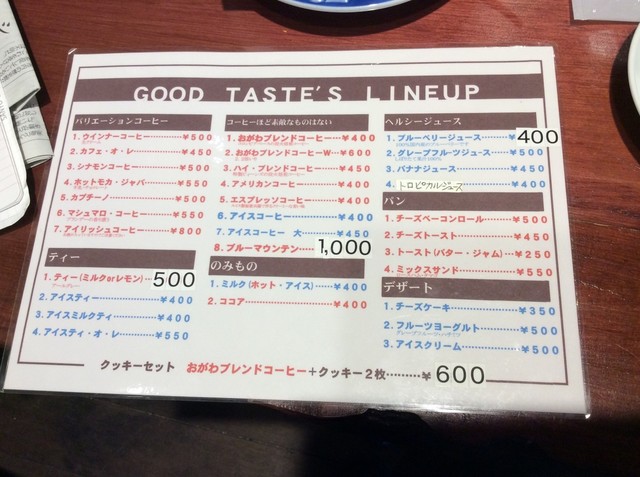 GOOD TASTE'S LINEUP
バリエーションコーヒー
1. ウインナーコーヒー…¥500
2. カフェ・オ・レ…¥450
3. シナモンコーヒー…¥500
4. ホットモカ・ジャバ…¥550
5. カプチーノ…¥500
6. マシュマロ・コーヒー…¥550
7. アイリッシュコーヒー…¥800
ティー
1. ティー(ミルクorレモン)…500
アールグレー
2. アイスティー…¥400
3. アイスミルクティ…¥400
4. アイスティ・オ・レ…¥550
コーヒーほど素敵なものはない
1. おがわブレンドコーヒー…¥400
2. おがわブレンドコーヒーW…¥600
3. ハイ・ブレンドコーヒー…¥450
4. アメリカンコーヒー…¥400
5. エスプレッソコーヒー…¥400
6. アイスコーヒー…¥400
7. アイスコーヒー 大…¥450
8. ブルーマウンテン…1,000
のみもの
1. ミルク(ホット・アイス)…¥400
2. ココア…¥400
ヘルシージュース
1. ブルーベリージュース…¥400
2. グレープフルーツジュース…¥500
3. バナナジュース…¥450
4. トロピカルジュース…¥400
パン
1. チーズベーコンロール…¥500
2. チーズトースト…¥450
3. トースト(バター・ジャム)…¥250
4. ミックスサンド…¥550
デザート
1. チーズケーキ…¥350
2. フルーツヨーグルト…¥500
3. アイスクリーム…¥500
クッキーセット おがわブレンドコーヒー+クッキー2枚………¥600